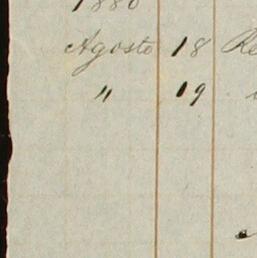 1880
Agosto 18 Re
" 19